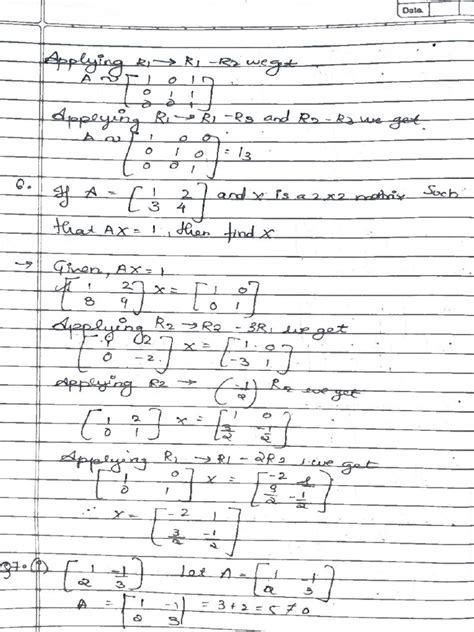 Date
Applying R1 → R1 - R2 we get
A ~ [1 0 1
0 1 1
0 0 1]
Applying R1 → R1 - R3 and R2 - R3 we get
A ~ [1 0 0
0 1 0
0 0 1] = I3
6. If A = [1 2
3 4] and x is a 2x2 matrix Such
that AX = I, then find X
→ Given, AX = I
[1 2
3 4] x = [1 0
0 1]
Applying R2 → R2 - 3R1 we get
[1 2
0 -2] x = [1 0
-3 1]
Applying R2 → (-1/2) R2 we get
[1 2
0 1] x = [1 0
3/2 -1/2]
Applying R1 → R1 - 2R2, we get
[1 0
0 1] x = [-2 1
3/2 -1/2]
∴ x = [-2 1
3/2 -1/2]
37. (i) [1 -1
2 3] Let A = [1 -1
2 3]
A = |1 -1
2 3| = 3+2 = 5 ≠ 0